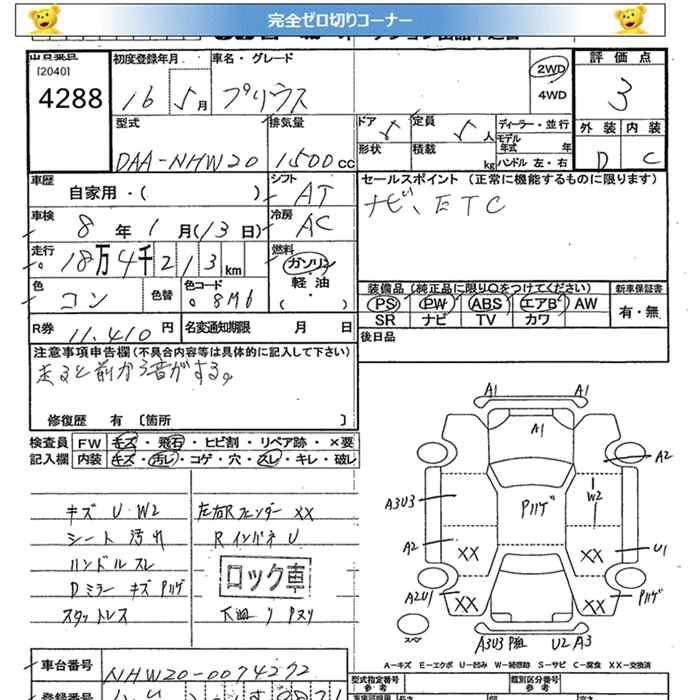 完全ゼロ切りコーナー
[2040]
4288
初度登録年月
16 5月
車名・グレード
プリウス
2WD
4WD
評価点
3
外装 内装
D C
型式
DAA-NHW20
排気量
1500 CC
ドア 5
定員 5 人
形状
積載 kg
ディーラー・並行
モデル年式 年
ハンドル 左・右
車歴
自家用・( )
シフト
AT
セールスポイント (正常に機能するものに限ります)
ナビ、ETC
車検
8 年 1 月 (13 日)
冷房
AC
走行
18万4千213 km
燃料
ガソリン
軽油
( )
色
コン
色替
色コード
8M6
装備品 (純正品に限り○をつけてください)
PS PW ABS エアB AW
SR ナビ TV カワ
新車保証書
有・無
R券 11,410 円
名変通知期限 月 日
後日品
注意事項申告欄 (不具合内容等は具体的に記入して下さい)
走ると前から音がする。
修復歴 有 〔箇所 〕
検査員記入欄
FW キズ・飛石・ヒビ割・リペア跡・×要
内装 キズ・汚レ・コゲ・穴・スレ・キレ・破レ
キズ U W2
シート 汚れ
ハンドル スレ
Dミラー キズ Pハゲ
スタットレス
左右Rフェンダー XX
Rインパネ U
ロック車
下廻り Pヌリ
A1 A1
A1
A2
A3U3
Pハゲ
W2
A2
XX XX
U1
A2U1
XX XX
Pハゲ
スペア
A3U3 P粗 U2 A3
A-キズ E-エクボ U-凹み W-補修跡 S-サビ C-腐食 XX-交換済
車台番号
NHW20-0074272
登録番号
型式指定番号
参考
類別区分番号
参考